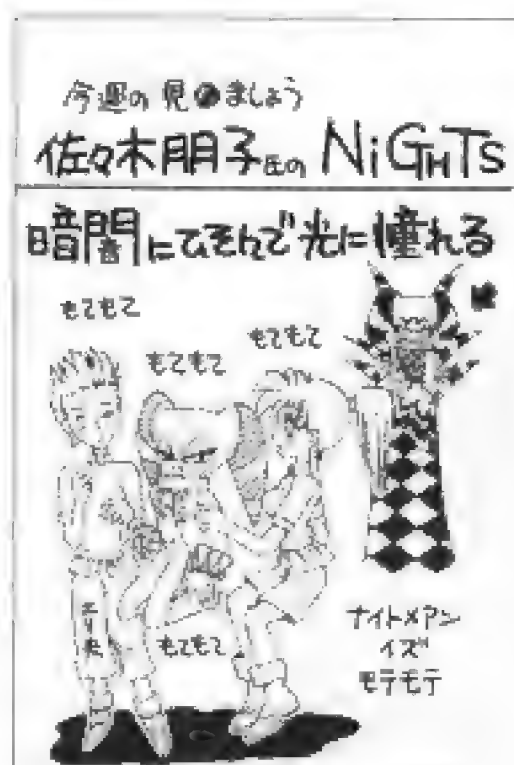 今週の見ましょう
佐々木朋子氏の NiGHTS
暗闇にひそんで光に憧れる
もてもて
もてもて
もてもて
もてもて
ナイトメアン
イズ
モテモテ